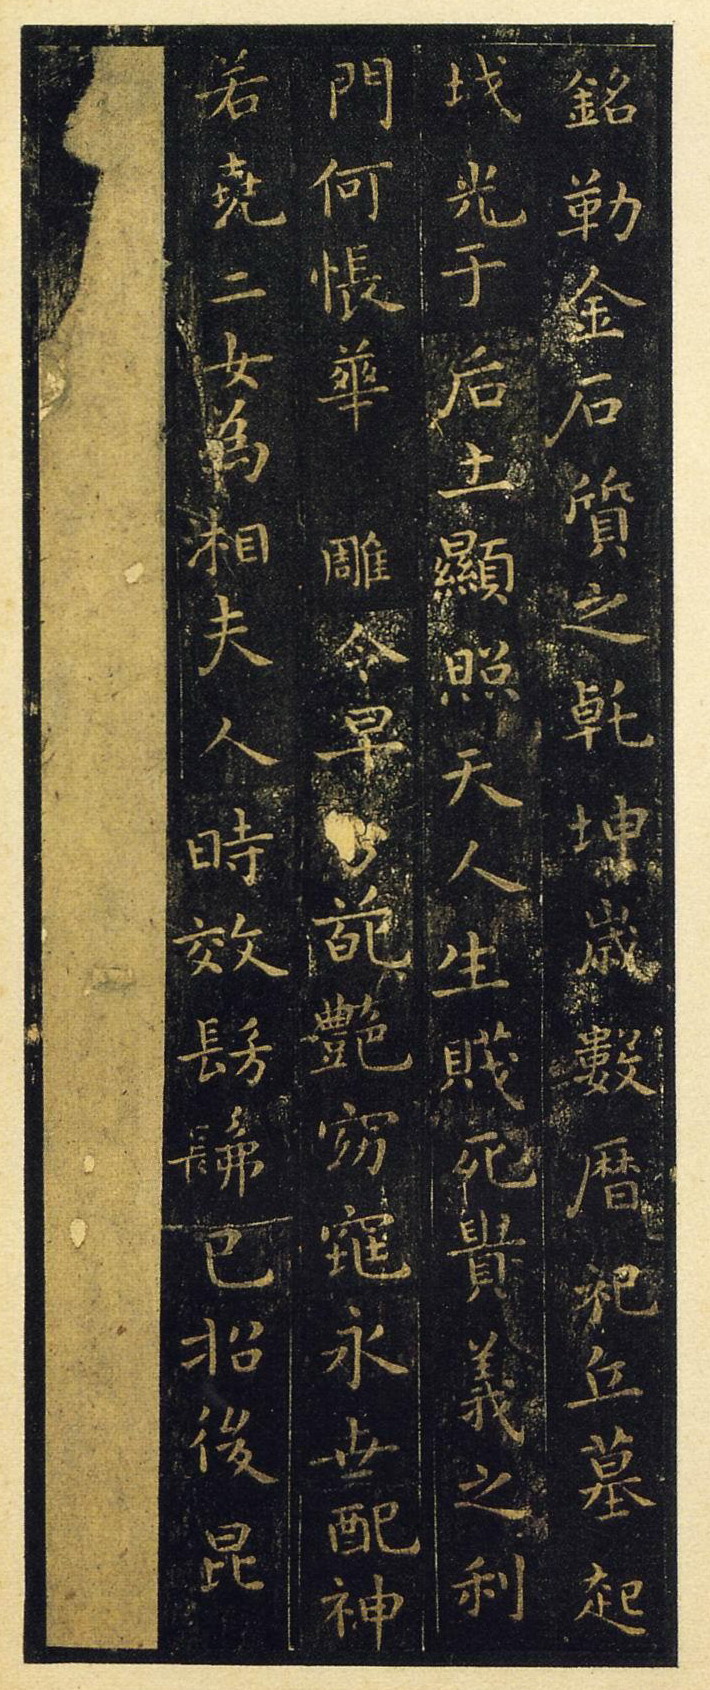 銘勒金石質之乹坤歲數曆祀丘墓起
坟光于后土顯照天人生賤死貴義之利
門何悵華雕零早分葩艷窈窕永世配神
若堯二女為相夫人時效髣髴以招後昆